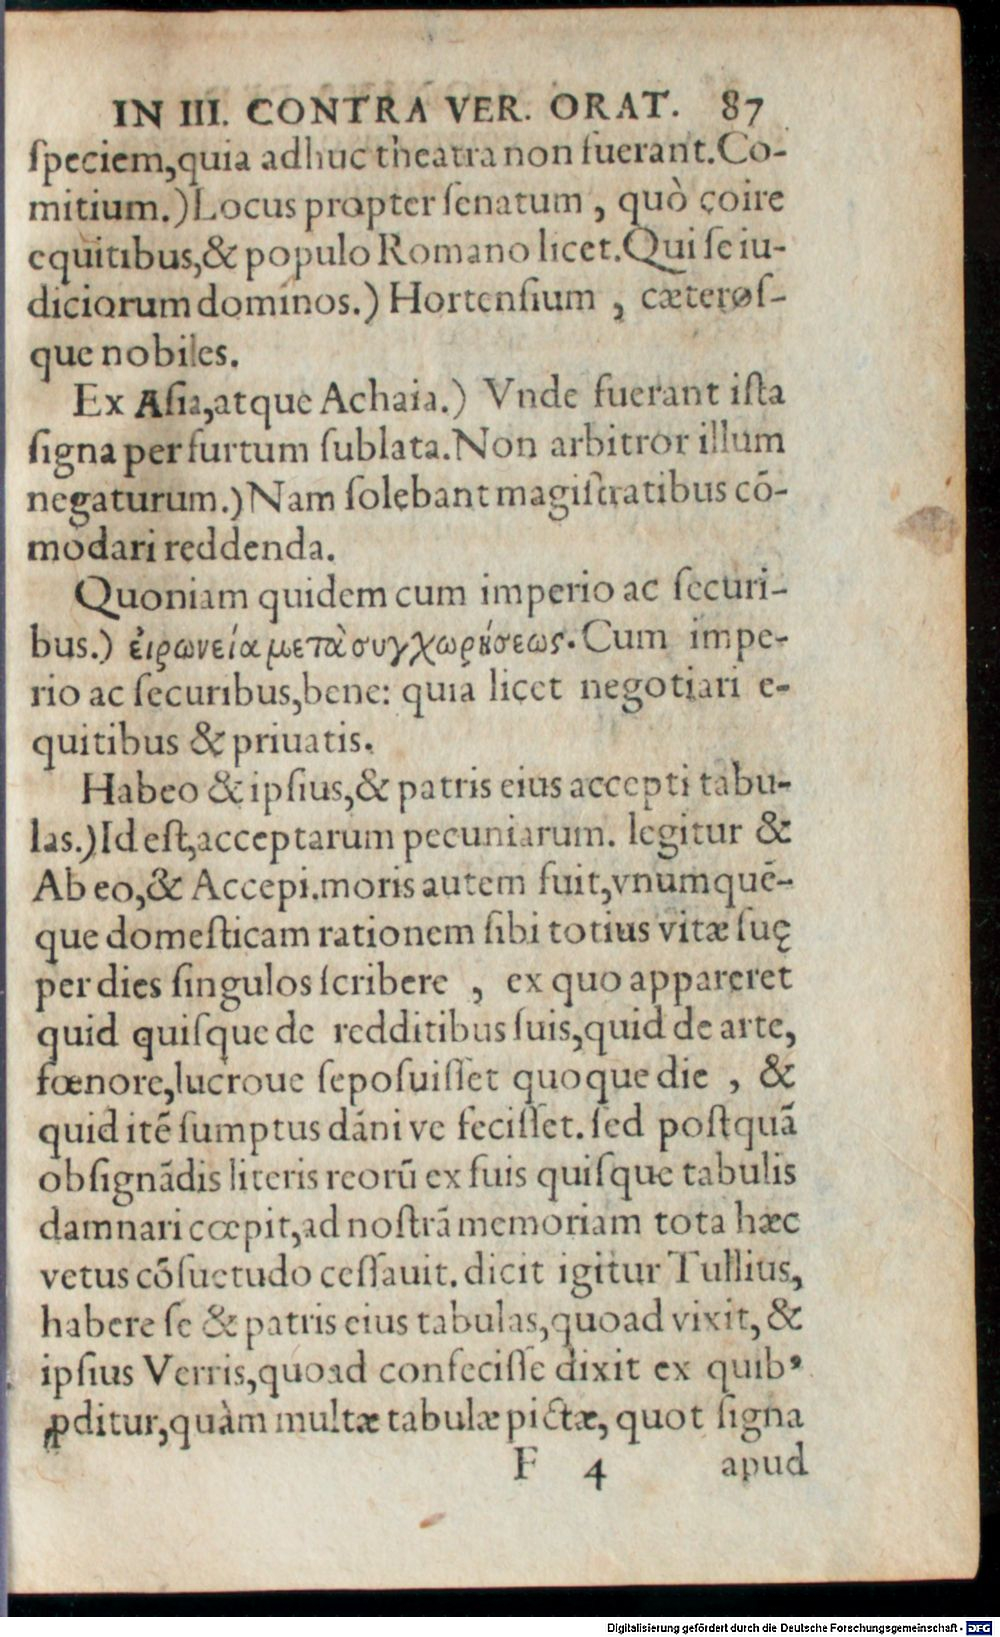 IN III. CONTRA VER. ORAT. 87
ſpeciem,quia adhuc theatra non fuerant.Co-
mitium.)Locus propter ſenatum , quò coire
equitibus,& populo Romano licet.Qui ſe iu-
diciorum dominos.) Hortenſium , cæteroſ-
que nobiles.
Ex Aſia,atque Achaia.) Vnde fuerant iſta
ſigna per furtum ſublata.Non arbitror illum
negaturum.)Nam ſolebant magiſtratibus cō-
modari reddenda.
Quoniam quidem cum imperio ac ſecuri-
bus.) εἰρωνεία μετὰ συγχωρήσεως. Cum impe-
rio ac ſecuribus,bene: quia licet negotiari e-
quitibus & priuatis.
Habeo & ipſius,& patris eius accepti tabu-
las.)Id eſt,acceptarum pecuniarum. legitur &
Ab eo,& Accepi.moris autem fuit,vnumquē-
que domeſticam rationem ſibi totius vitæ ſuę
per dies ſingulos ſcribere , ex quo appareret
quid quiſque de redditibus ſuis,quid de arte,
fœnore,lucroue ſepoſuiſſet quoque die , &
quid itē ſumptus dāni ve feciſſet. ſed poſtquā
obſignādis literis reorū ex ſuis quiſque tabulis
damnari cœpit,ad noſtrā memoriam tota hæc
vetus cōſuetudo ceſſauit. dicit igitur Tullius,
habere ſe & patris eius tabulas,quoad vixit, &
ipſius Verris,quoad confeciſſe dixit ex quibꝰ
ꝓditur,quàm multæ tabulæ pictæ, quot ſigna
F 4 apud
Digitalisierung gefördert durch die Deutsche Forschungsgemeinschaft - DFG